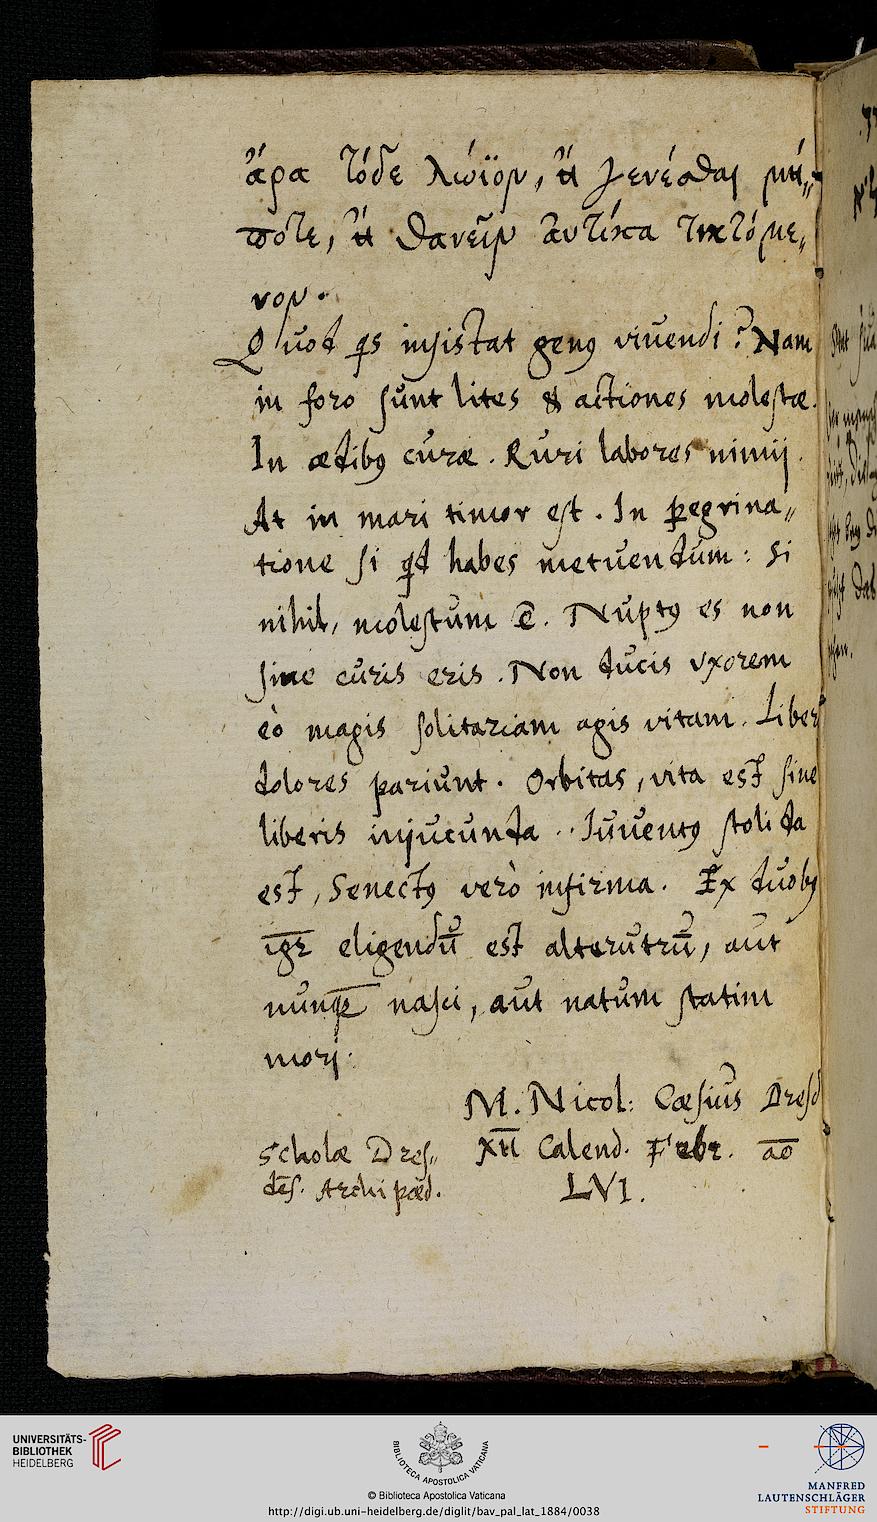 ἄρα τόδε λώϊον, ἢ γενέσθαι μή„
ποτε, ἢ θανεῖν αὐτίκα τικτόμε„
νον.
Quod qs insistat geng vivendi? Nam
in foro sunt lites & actiones molestæ.
In ædibg curæ. Ruri labores nimij.
At in mari timor est. In peregrina„
tione si qd habes metuendum: Si
nihil, molestum ē. Nuptg es non
sine curis eris. Non ducis vxorem
eò magis solitariam agis vitam. Liberi
dolores pariunt. Orbitas, vita est sine
liberis injucunda. Iuventg stolida
est, Senectg verò infirma. Ex duobg
igr eligendū est alterutrū, aut
nunqȝ nasci, aut natum statim
mori.
M. Nicol: Cæsius Dresd
Scholæ Dres„ XII Calend. Febr. ao
dēs. Archipæd. LVI.
UNIVERSITÄTS-
BIBLIOTHEK
HEIDELBERG
BIBLIOTECA APOSTOLICA VATICANA
© Biblioteca Apostolica Vaticana
http://digi.ub.uni-heidelberg.de/diglit/bav_pal_lat_1884/0038
MANFRED
LAUTENSCHLÄGER
STIFTUNG